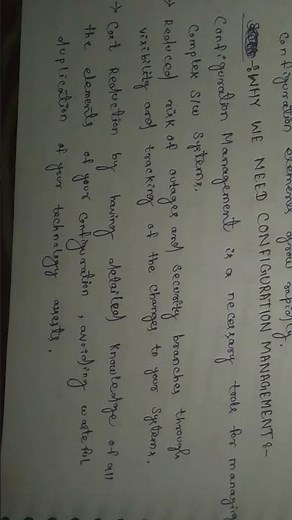 Configuration elements grow rapidly.
WHY WE NEED CONFIGURATION MANAGEMENT :-
Configuration Management is a necessary tools for managing
Complex S/W Systems.
→ Reduced risk of outages and Security branches through
visibility and tracking of the changes to your Systems.
→ Cost Reduction by having detailed knowledge of all
the elements of your Configuration, avoiding wasteful
duplication of your technology assests.